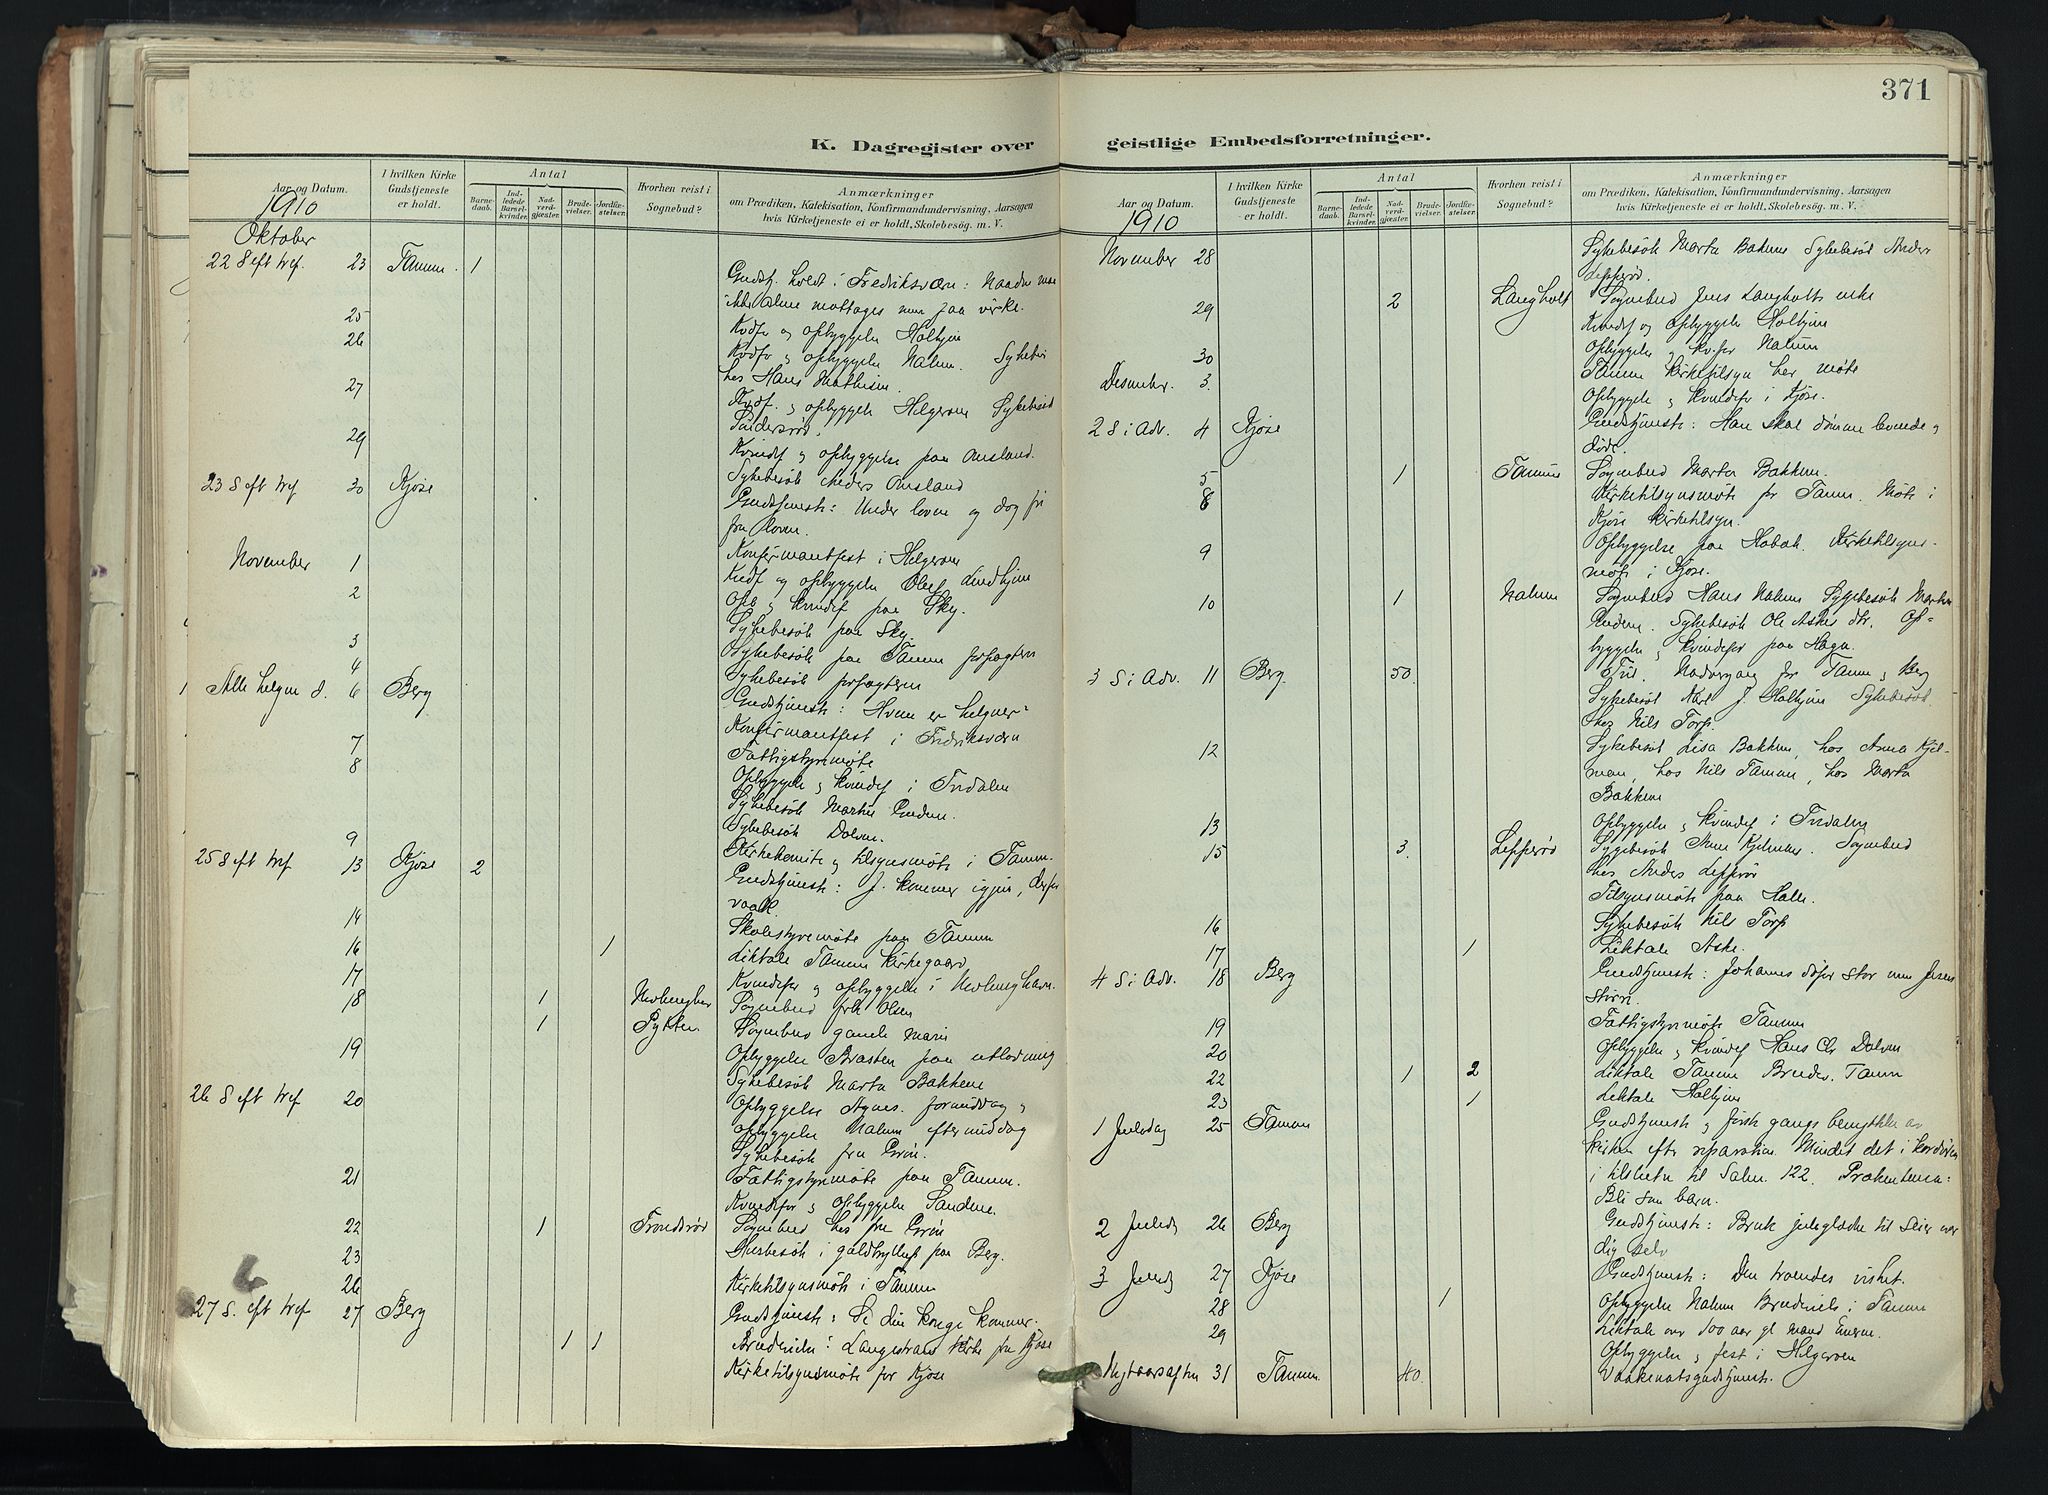 371
K. Dagregister over geistlige Embedsforretninger.
Aar og Datum.
I hvilken Kirke Gudstjeneste er holdt.
Antal
Barnedaab.
Indledede Barselkvinder.
Nadverdgjæster.
Brudevielser.
Jordfæstelser.
Hvorhen reist i Sognebud?
Anmærkninger
om Prædiken, Katekisation, Konfirmandundervisning, Aarsagen
hvis Kirketjeneste ei er holdt, Skolebesøg. m. V.
1910
Oktober
22 S eft tref. 23 Tanum. 1
Gudstj. holdt i Fredriksværn: Naaden maa
ikke alene mottages men paa virke.
25 Kvdf og opbyggelse Holhjem
26 Kvdfr og opbyggelse Nalum. Sykebes
hos Hans Mathisen.
27 Kvdf. og opbyggelse Helgeroa Sykebesøk
29 Kvindef og opbyggelse paa Omsland.
Sykebesøk Anders Omsland
23 S eft tref 30 Kjose
Gudstjeneste: Under loven og dog fri
fra loven.
November 1 Konfirmantfest i Helgeroa
Kvdf og opbyggelse Oluf Lindhjem
2 Opb og kvindef paa Sky.
Sykebesøk paa Sky.
3 Sykebesøk paa Tanum forpagteren
4 Sykebesøk forpagteren
Alle helgen d. 6 Berg
Gudstjeneste: Hvem er helgner-
Konfirmantfest i Fredriksværn
7 Fattigstyremøte
8 Opbyggelse og kvindef i Tvedalen
Sykebesøk Martin
Sykebesøk Dolven.
9 Kirkekomite og tilsynsmøte i Tanum.
25 S eft tref 13 Kjose 2
Gudstjeneste: J. kommer igjen, derfor
vaak.
14 Skolestyremøte paa Tanum
16 1 Liktale Tanum kirkegaard
17 Kvindefor og opbyggelse i Nevlunghavn.
18 1 Nevlunghavn Sognebud frk Olsen
1 Pytten Sognebud gamle Marie
19 Opbyggelse Braaten paa utlodning
Sykebesøk Marta Bakkene
26 S eft tref 20 Opbyggelse Agnes. formiddag og
opbyggelse Nalum eftermiddag
Sykebesøk fru Grøn.
21 Fattigstyremøte paa Tanum.
Kvindefor og opbyggelse Sandene.
22 1 Trondsrød Sognebud hos fru Grøn
23 Husbesøk i guldbryllup paa Berg.
26 Kirketilsynsmøte i Tanum
27 S. eft tref 27 Berg
Gudstjeneste: Se din konge kommer.
1 1 Brudevielse: Langestrand kirke fra Kjose
Kirketilsynsmøte for Kjose
Aar og Datum.
I hvilken Kirke Gudstjeneste er holdt.
Antal
Barnedaab.
Indledede Barselkvinder.
Nadverdgjæster.
Brudevielser.
Jordfæstelser.
Hvorhen reist i Sognebud?
Anmærkninger
om Prædiken, Katekisation, Konfirmandundervisning, Aarsagen
hvis Kirketjeneste ei er holdt, Skolebesøg. m. V.
1910
November 28 Sykebesøk Marta Bakkene Sykebesøk Anders
Lepperød.
29 2 Langholt Sognebud Jens Langholts enke
Kvindef og opbyggelse Holhjem
30 Opbyggelse og kv.for Nalum
Desember. 3. Tanum kirketilsyn her møte
Opbyggelse og kvindefor i Kjose.
2 S i Adv. 4 Kjose
Gudstjeneste: Han skal dømme levende og
døde.
5 1 Tanum Sognebud Marta Bakkene.
8 Kirketilsynsmøte for Tanum. Møte i
Kjose kirketilsyn.
9 Opbyggelse paa Hobæk. Kirketilsyns-
møte i Kjose.
10 1 Nalum Sognebud Hans Nalum Sygebesøk Martin
Sykebesøk Ole Askes dtr. Op-
byggelse og kvindefor paa Hagn.
3 S i Adv. 11 Berg. 50.
Tvil. Nadvergang for Tanum og Berg
Sykebesøk Karl J. Holhjem Sykebesøk
hos Nils Torp.
12 Sykebesøk Lisa Bakkene, hos Anna Kjel-
man, hos Nils Tanum, hos Marta
Bakkene
13 Opbyggelse og kvindef i Tvedalen
15 3. Lepperød Sygebesøk Anna Kjelman. Sognebud
hos Anders Lepperød
Tilsynsmøte paa Halle.
16 Sykebesøk Nils Torp
17 1 Liktale Aske.
4 S i Adv. 18 Berg
Gudstjeneste: Johannes døper stor men Jesus
større.
19 Fattigstyremøte Tanum
20 Opbyggelse og kvindef Hans Chr Dolven
22 1 2 Liktale Tanum Brudev. Tanum
23 1 Liktale Holhjem
1 Juledag 25 Tanum
Gudstjeneste og første gangs benyttelse av
kirken efter reparation. Mindet det i kordøren
i tilslutn til Salm. 122. Prækentema:
Bli som barn.
2 Juleda 26 Berg
Gudstjeneste: Bruk juleglæde til seier over
dig selv
3 Juled 27 Kjose
Gudstjeneste: Den troendes visshet.
28 1 Opbyggelse Nalum Brudeviels i Tanum
29 Liktale over 100 aar gl mand
Opbyggelse og fest i Helgeroa
Nytaarsaften 31 Tanum. 40.
Vaakenatsgudstjeneste.